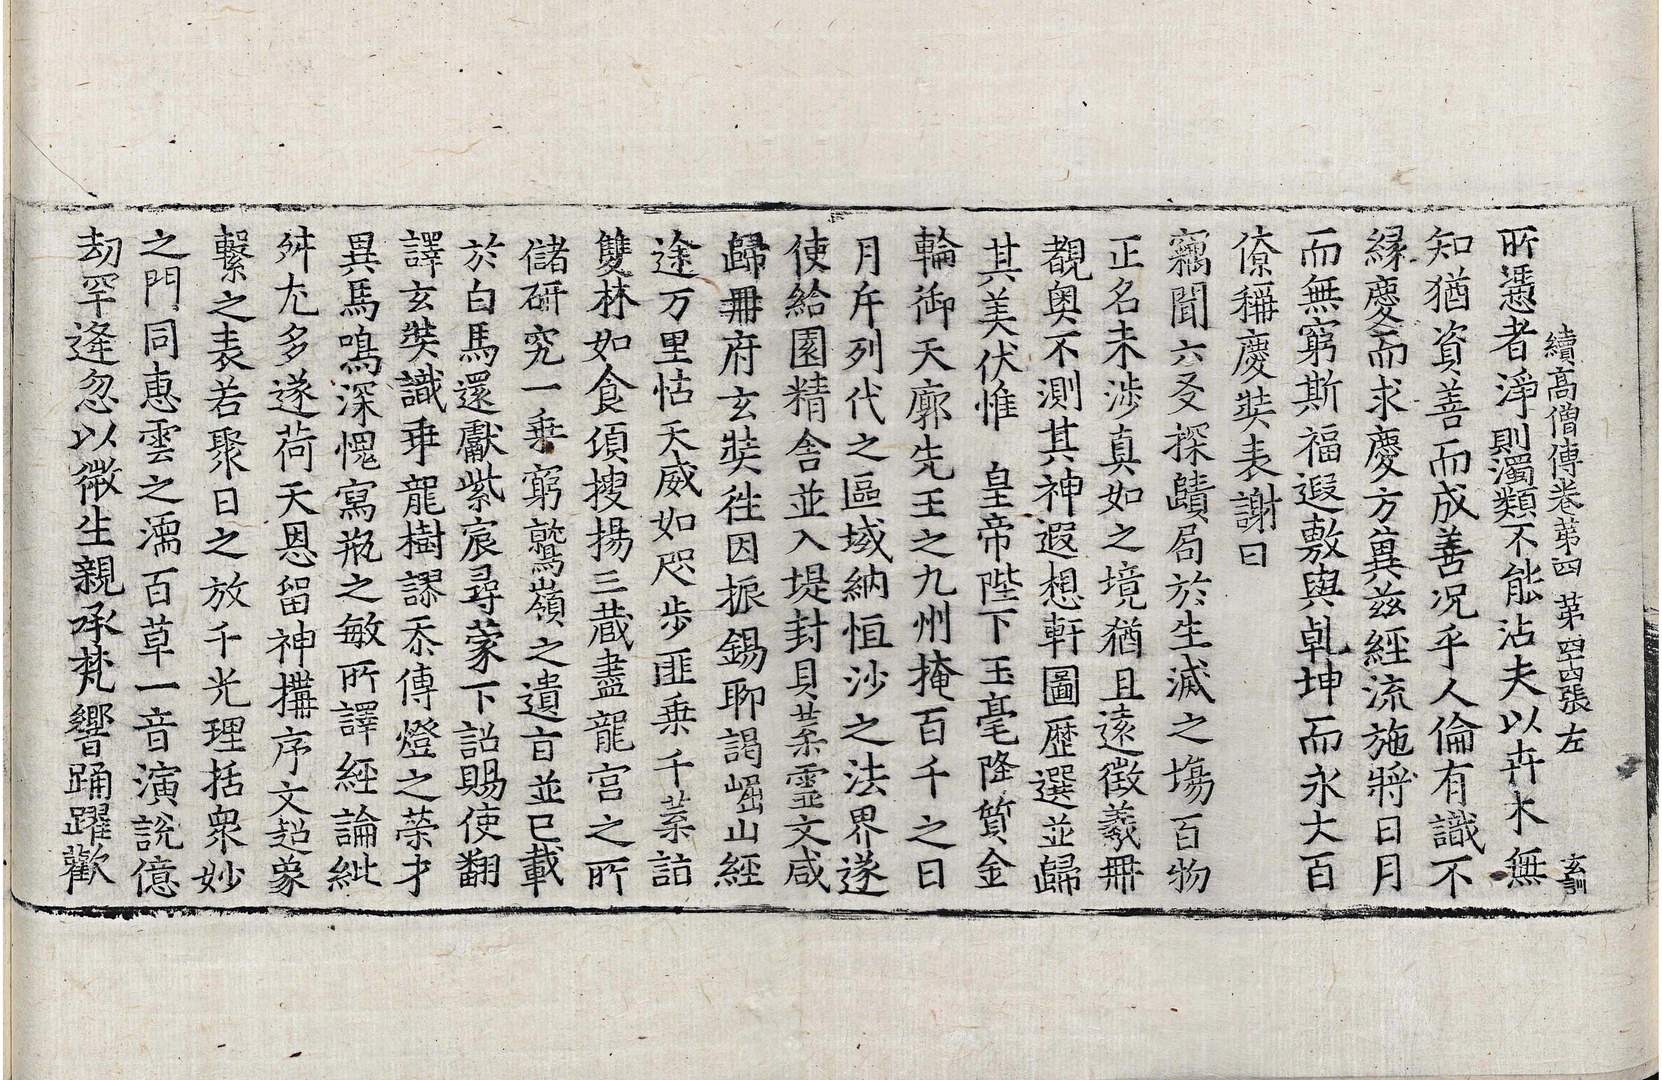 續高僧傳卷第四 第四十四張 左 玄訓
所憑者淨則濁類不能沾夫以卉木無
知猶資善而成善況乎人倫有識不
緣慶而求慶方冀茲經流施將日月
而無窮斯福遐敷與乹坤而永大百
僚稱慶奘表謝曰
竊聞六爻探賾局於生滅之塲百物
正名未涉真如之境猶且遠徵羲冊
覩奧不測其神遐想軒圖歷選並歸
其美伏惟 皇帝陛下玉毫降質金
輪御天廓先王之九州掩百千之日
月斥列代之區域納恒沙之法界遂
使給園精舍並入堤封貝葉靈文咸
歸冊府玄奘往因振錫聊謁崛山經
途万里怙天威如咫步匪乗千葉詣
雙林如食頃搜揚三藏盡龍宮之所
儲研究一乗窮鷲嶺之遺盲並已載
於白馬還獻紫宸尋蒙下詔賜使翻
譯玄奘識乖龍樹謬忝傳燈之榮才
異馬鳴深愧寫瓶之敏所譯經論紕
舛尤多遂荷天恩留神搆序文超象
繫之表若聚日之放千光理括衆妙
之門同惠雲之濡百草一音演說億
劫罕逢忽以微生親承梵響踊躍歡